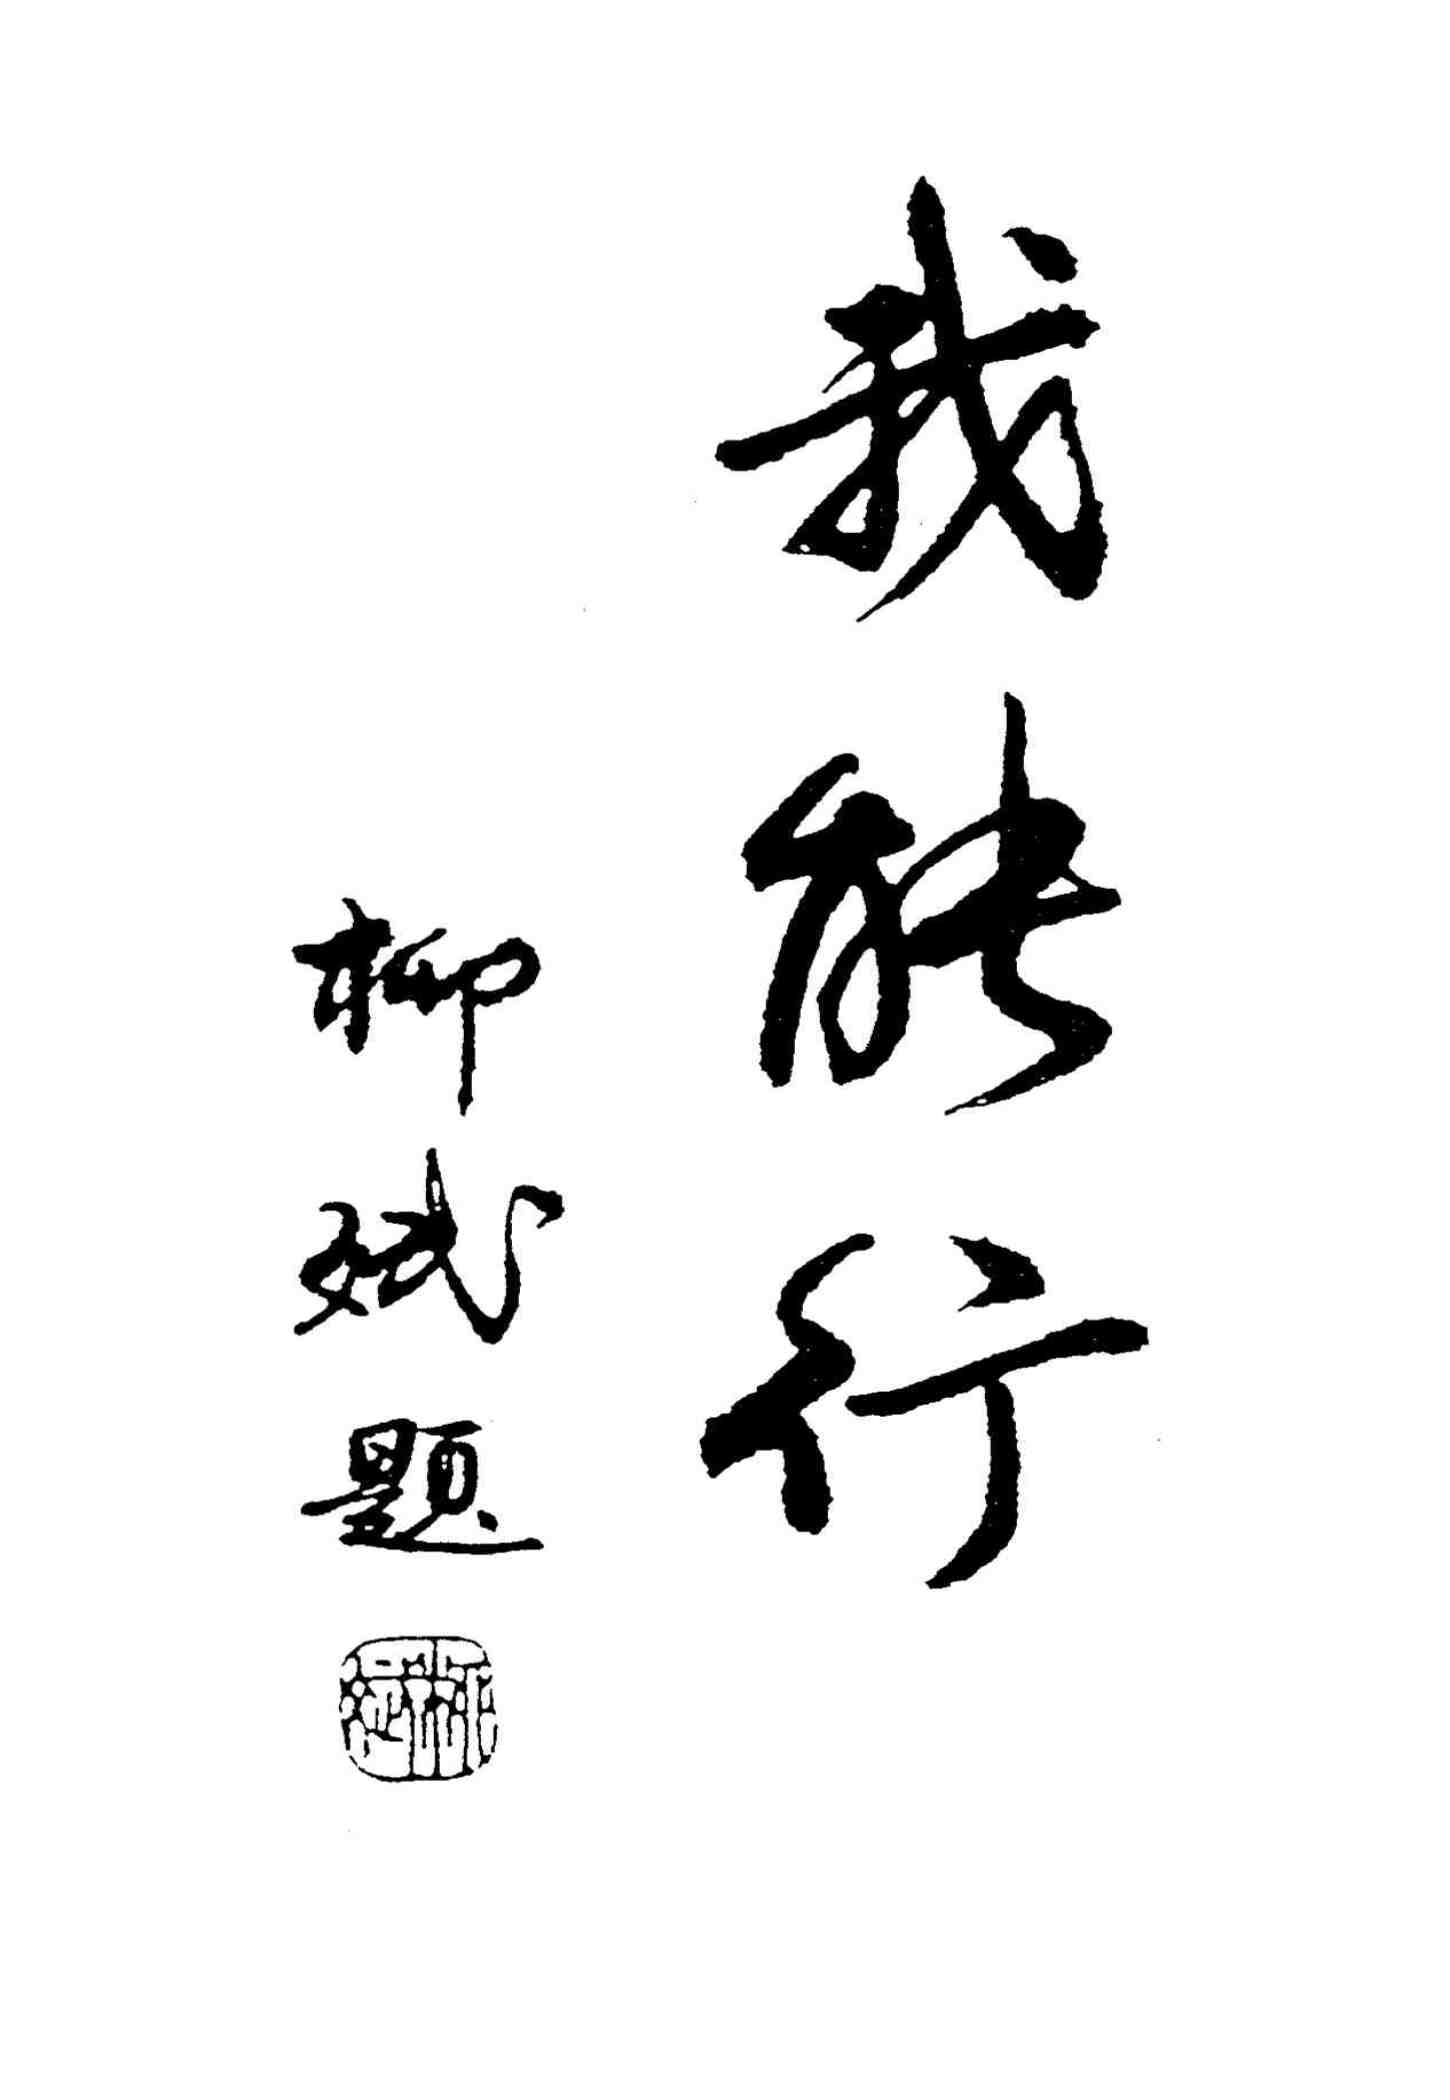 我能行
柳斌题